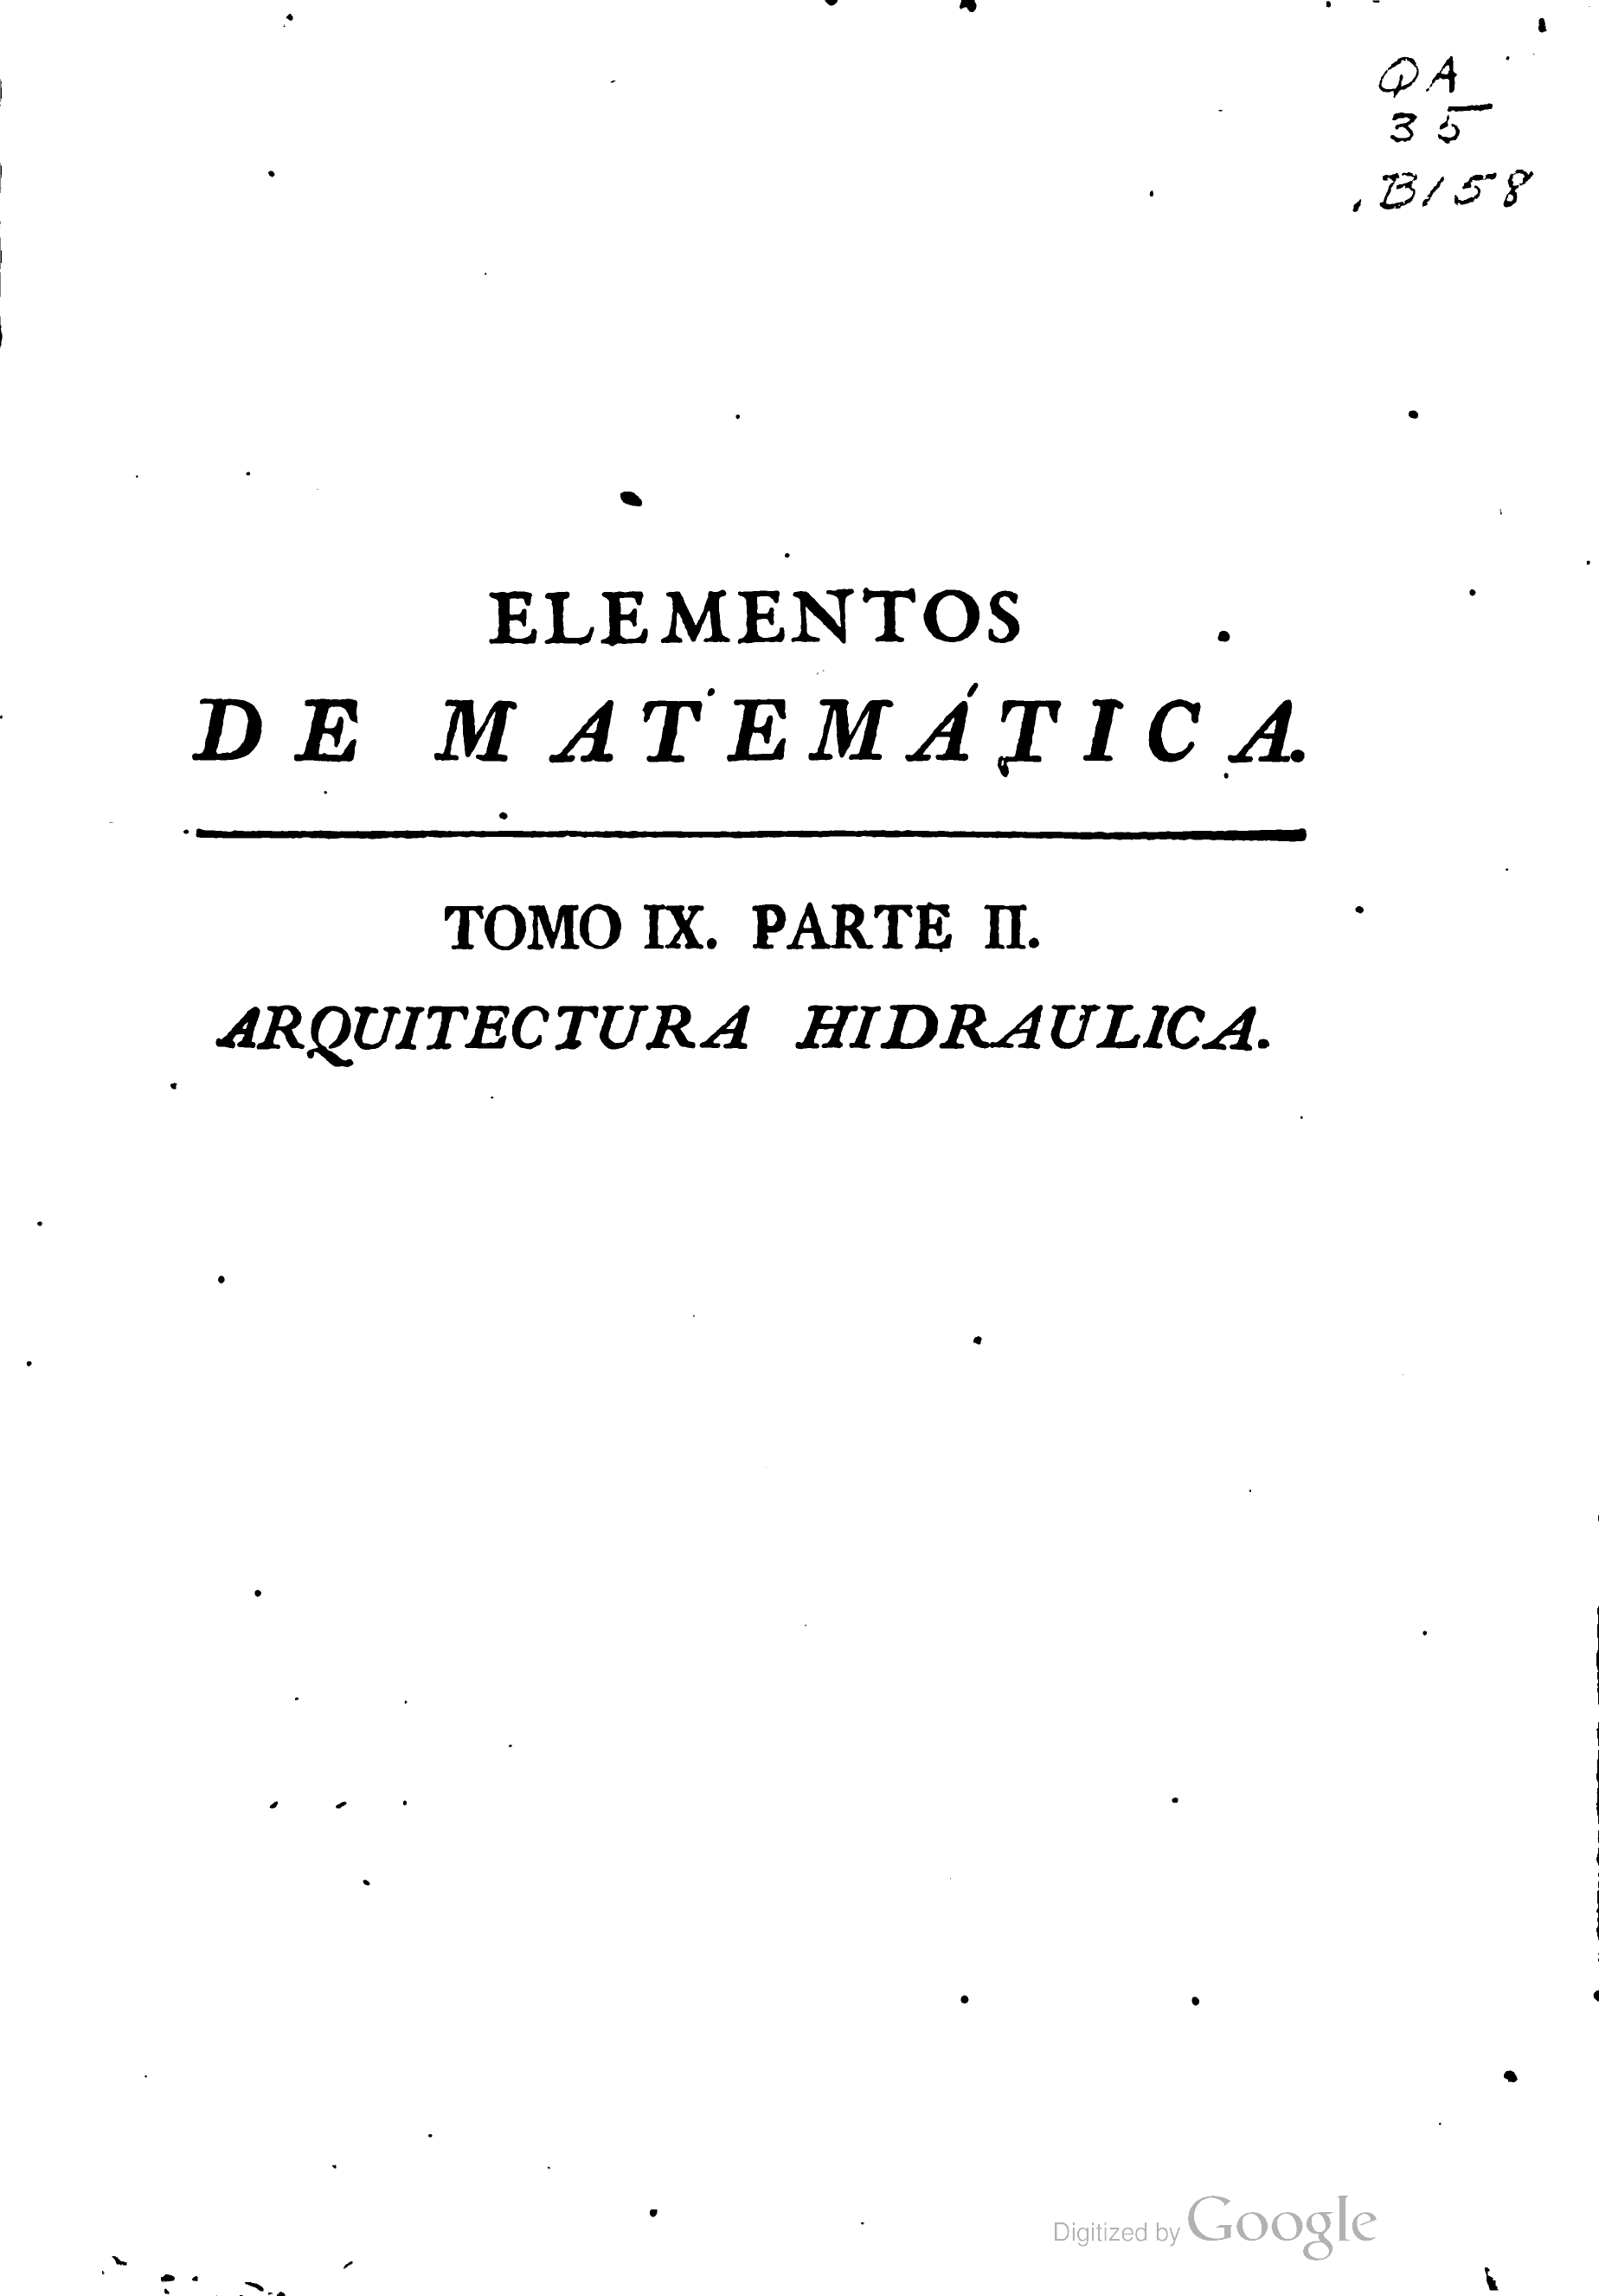 QA
35
.B158
ELEMENTOS
DE MATEMÁTICA.
TOMO IX. PARTE II.
ARQUITECTURA HIDRAULICA.
Digitized by Google